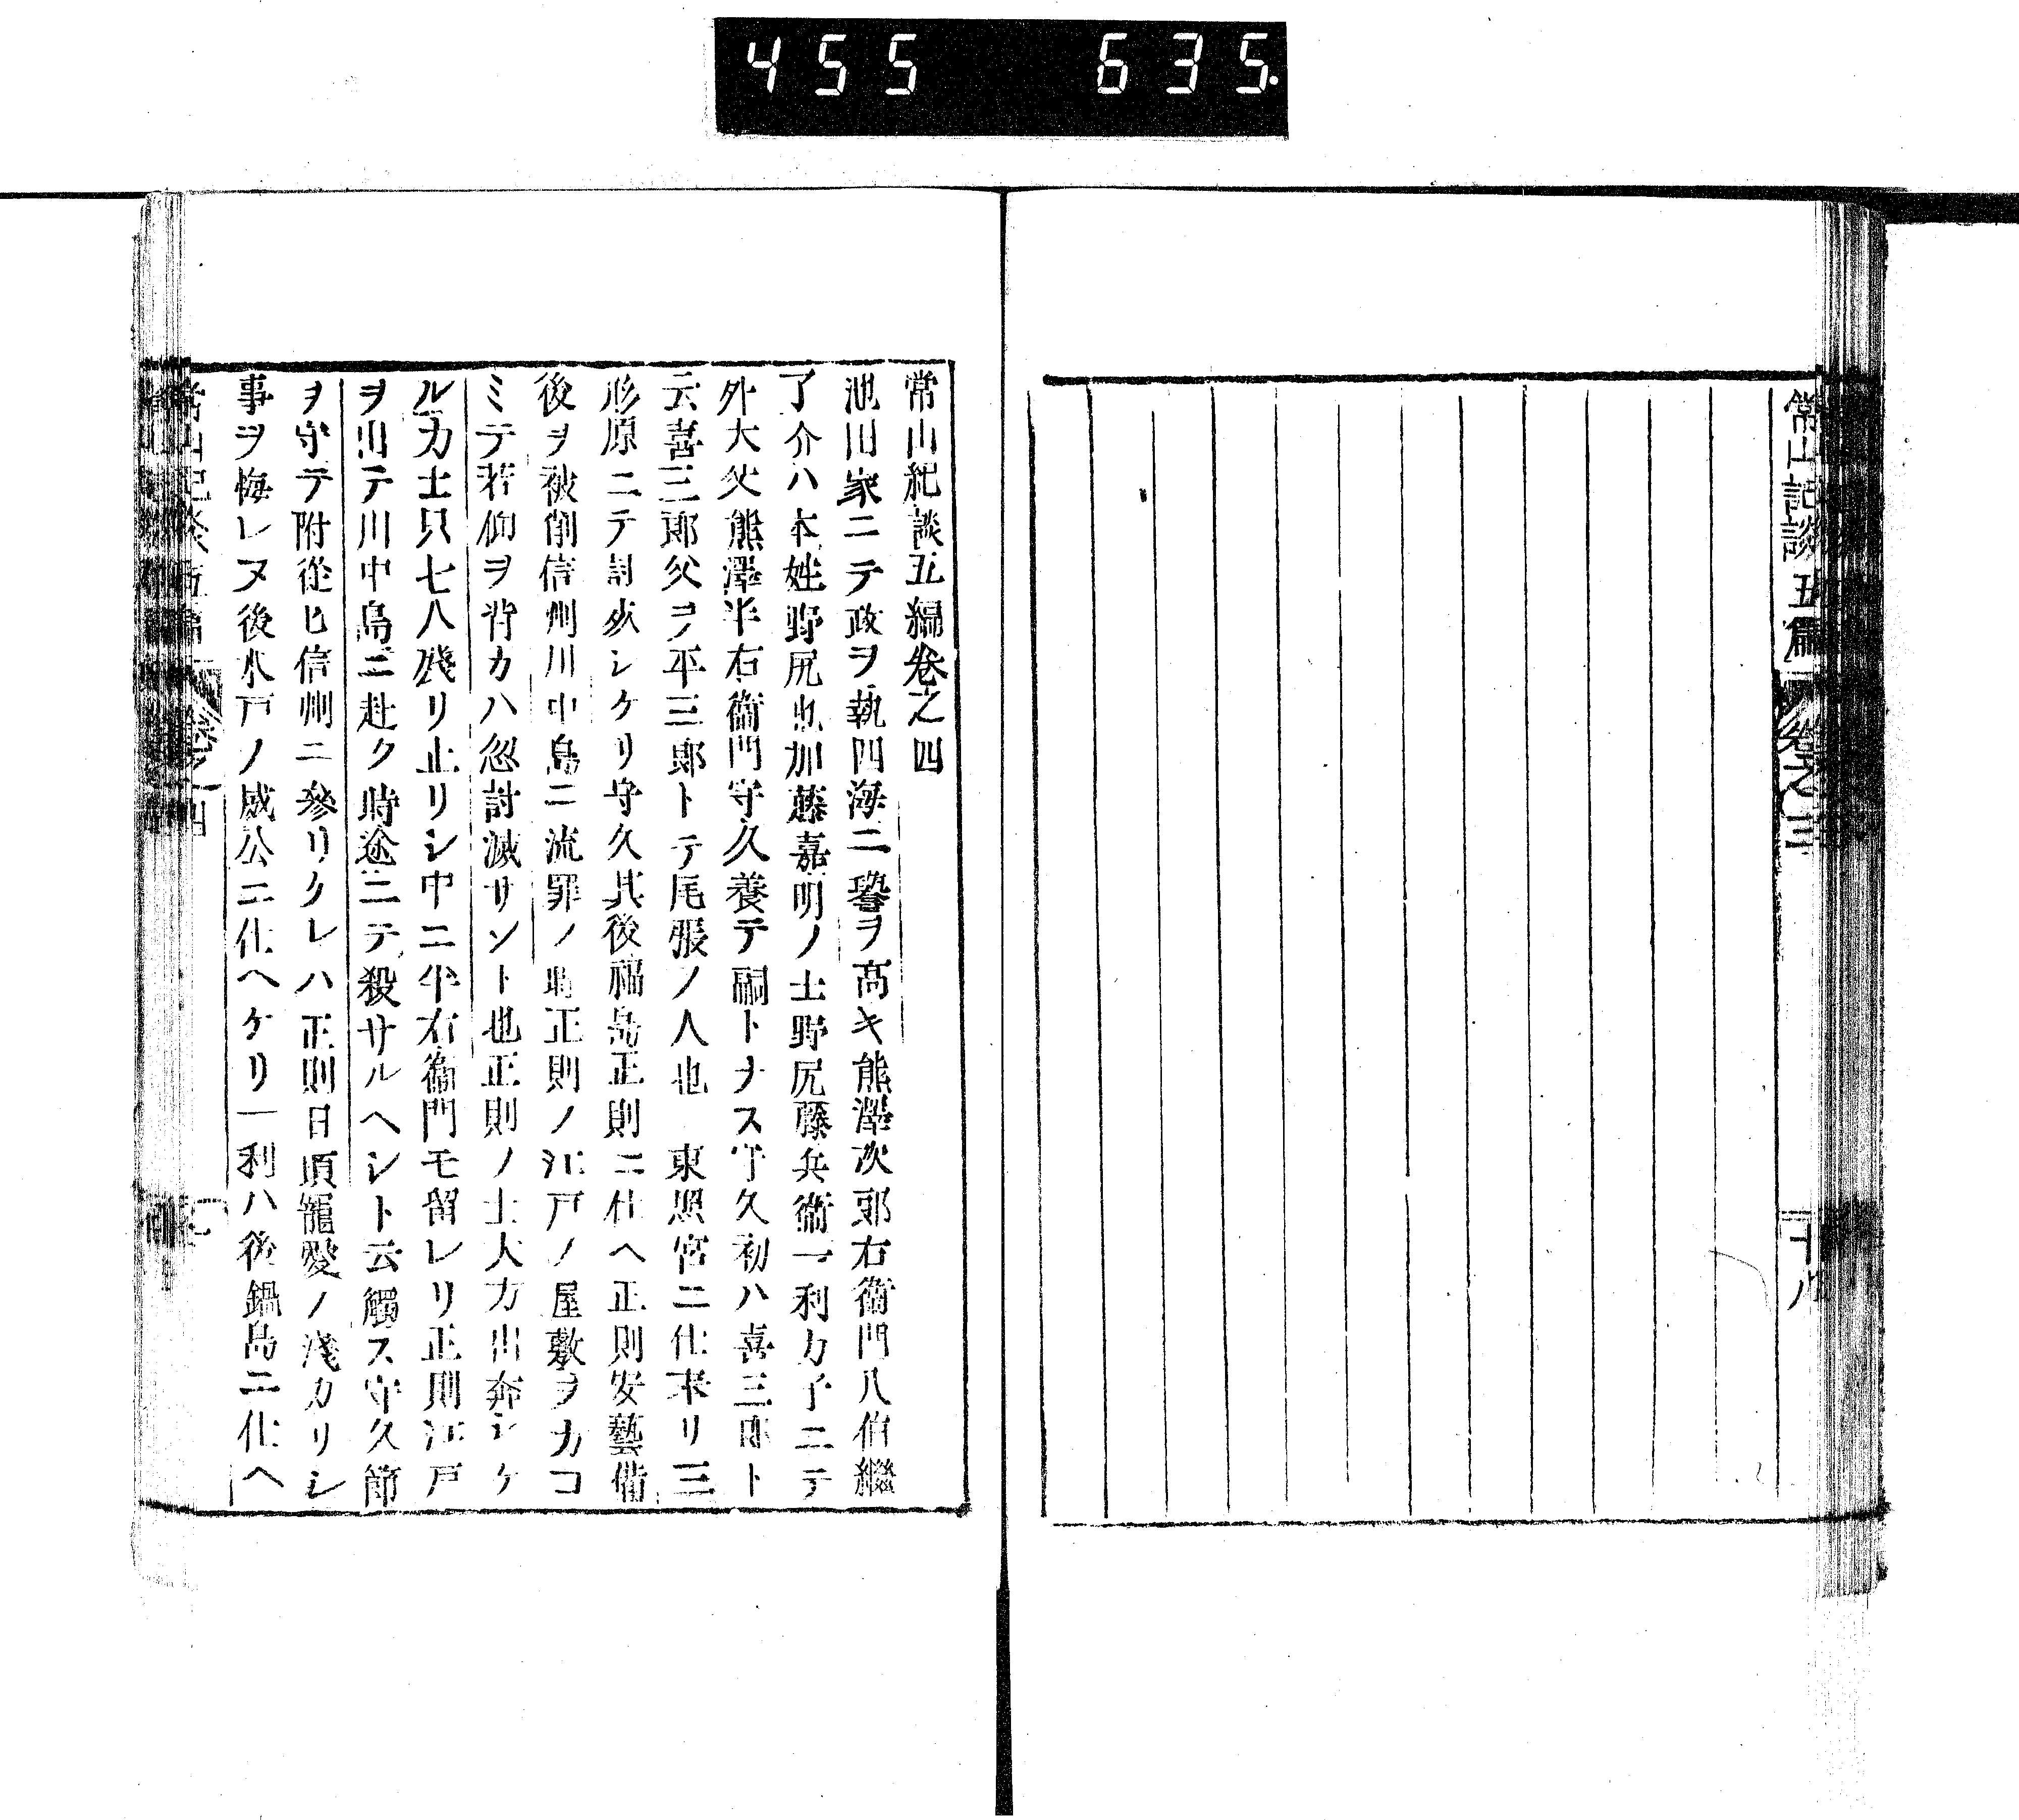 455 635.
常山記談五篇 卷之三 十八
常山紀談五編卷之四
池田家ニテ政ヲ執四海ニ譽ヲ高キ熊澤次郎右衞門八伯繼
了介ハ本姓野尻也加藤嘉明ノ士野尻藤兵衞一利カ子ニテ
外大父熊澤半右衞門守久養テ嗣トナス守久初ハ喜三郎ト
云喜三郎父ヲ平三郎トテ尾張ノ人也 東照宮ニ仕來リ三
形原ニテ討死シケリ守久其後福島正則ニ仕ヘ正則安藝備
後ヲ被削信州川中島ニ流罪ノ時正則ノ江戸ノ屋敷ヲカコ
ミテ若仰ヲ背カハ忽討滅サント也正則ノ士大方出奔シケ
ル力士只七八殘リ止リシ中ニ半右衞門モ留レリ正則江戸
ヲ出テ川中島ニ赴ク時途ニテ殺サルヘシト云觸ス守久節
ヲ守テ附從ヒ信州ニ參リクレハ正則日頃寵愛ノ淺カリシ
事ヲ悔レヌ後水戸ノ威公ニ仕ヘケリ一利ハ後鍋島ニ仕ヘ
常山紀談五編 卷之四